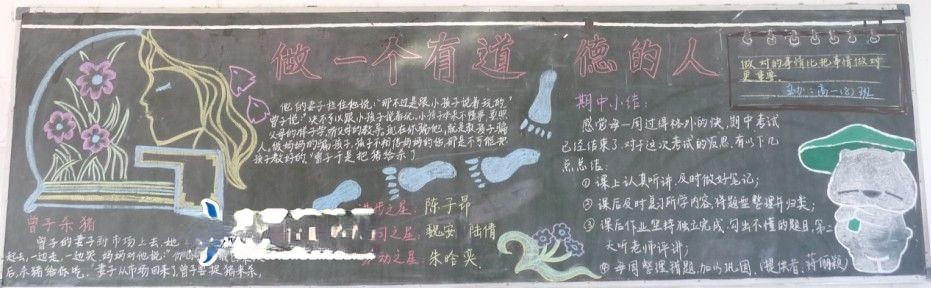 做一个有道德的人
曾子杀猪
曾子的妻子到市场上去，她
起去，一边走，一边哭，妈妈对他说：
后，杀猪给你吃，"妻子从市场回来了，曾子要捉猪来杀，
他的妻子拦住他说："那不过是跟小孩子说着玩的"
曾子说："决不可以跟小孩子说着玩。小孩子本来不懂事，要照
父母的样子学，听父母的教导。现在你骗他，就是教孩子骗
人。做妈妈的骗孩子，孩子不相信妈妈的话，那是不可能把
孩子教好的"曾子于是把猪给杀了
进步之星：陈子昂
习之星：魏安 陆倩
劳动之星：朱哈奕
期中小结：
感觉每一周过得格外的快，期中考试
已经结束了，对于这次考试的反思，有以下几
点总结：
① 课上认真听讲，及时做好笔记；
② 课后及时复习所学内容，错题整理并归类；
③ 课后作业坚持独立完成，勾出不懂的题目，第二
天听老师评讲；
④ 每周整理错题，加以巩固。（提供者：蒋丽颖）
做对的事情比把事情做对
更重要
主办：高一（8）班